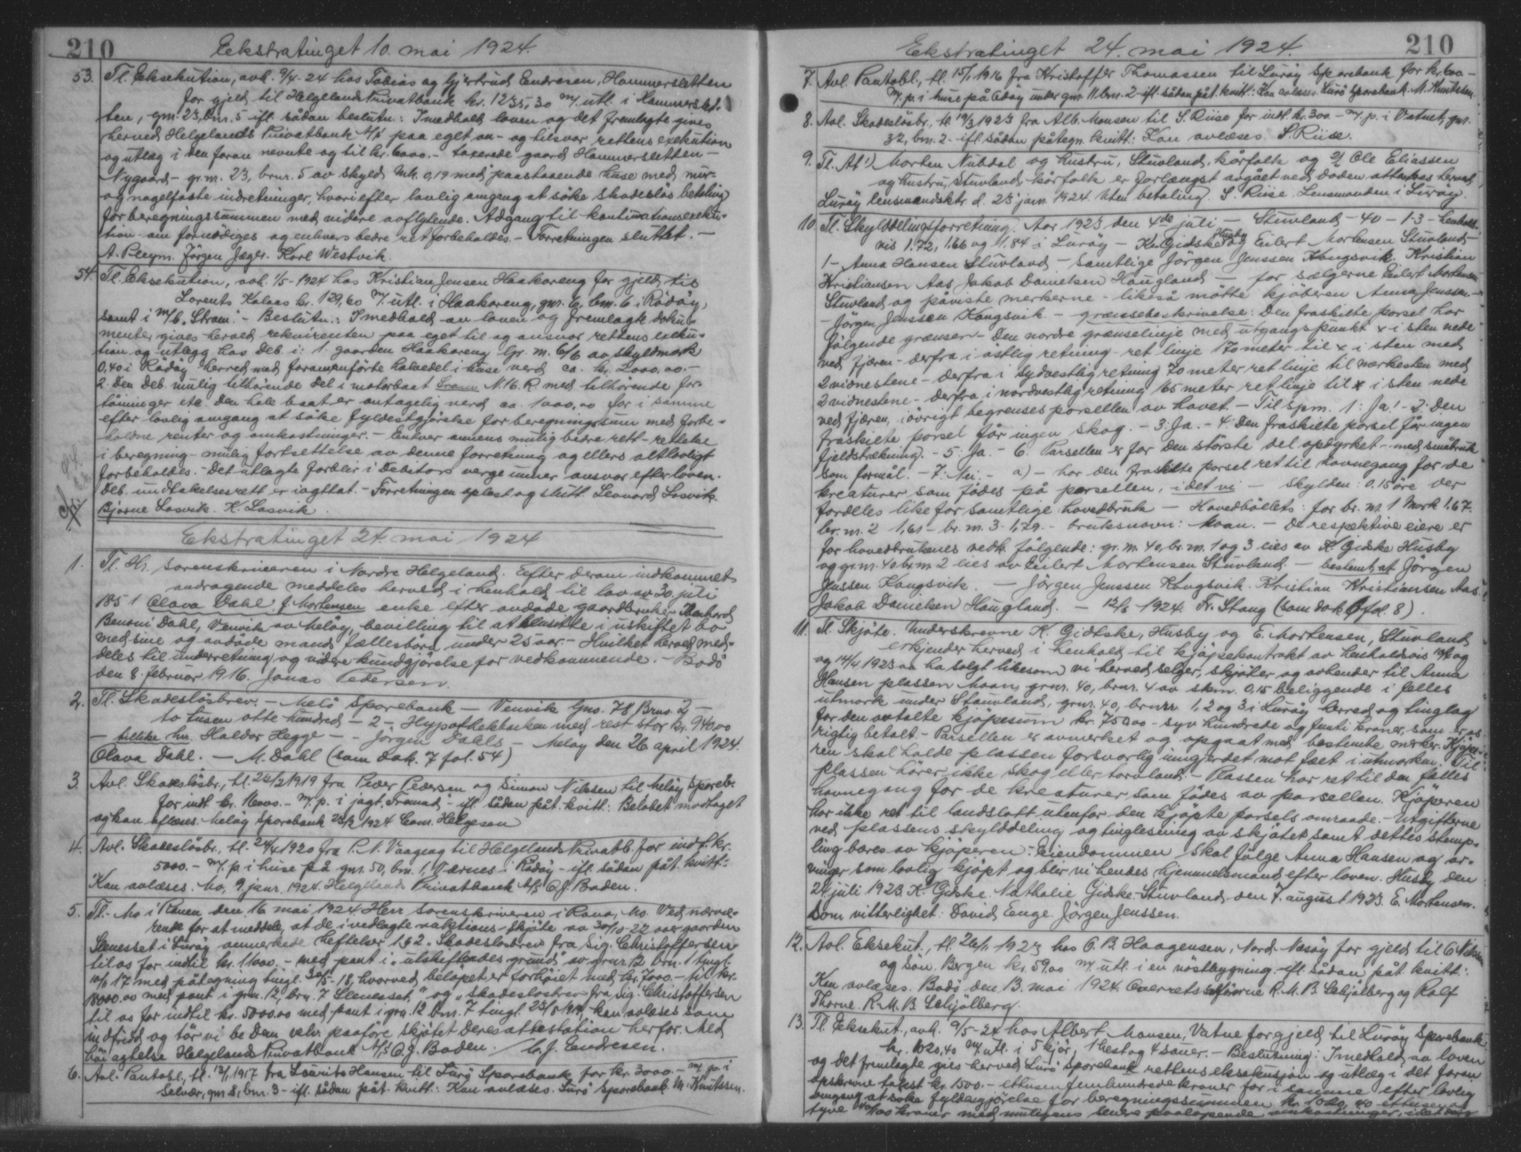 210 Ekstratinget 10 mai 1924.
53. Tl. Eksekution, avh. 9/4-24 hos Tobias og Hjertrud Endresen, Hammersletten
for gjeld til Helgelands Privatbank kr. 1235,30 m/ utl. i Hammerslet-
ten, gnr. 23, bnr. 5 ifl. sådan beslutn: I medhold loven og det fremlagte gives
herved Helgelands Privatbank A/s paa eget an- og tilsvar rettens exekution
og utlæg i den foran nevnte og til kr. 6000.- taxerede gaard Hammersletten -
Nygaard - gr. nr. 23, brnr. 5 av skyld mk. 0,19 med paastaaende huse med mur-
og nagelfaste indretninger, hvori efter lovlig omgang at söke skadeslös betaling
for beregningssummen med videre avflytende. Adgang til kontinuationsexeku-
tion om fornödiges og enhvers bedre ret forbeholdes. - Forretningen sluttet. -
A. Pleym. Jörgen Jager. Karl Westvik.
54. Tl. Eksekution, avh. 1/5-1924 hos Kristian Jensen Haakoreng for gjeld til
Lorents Kolaas kr. 129,60 m/ utl. i Haakoreng, gnr. 6, bnr. 6 i Rödöy,
samt i m/b. "Strom". - Beslutn.: I medhold av loven og fremlagte doku-
menter gives herved rekvirenten paa eget til og ansvar rettens exeku-
tion og utlægg hos deb i: 1 gaarden Haakoreng gr. nr. 6/6 av skyldmark
0,40 i Rödöy herred med forananförte
2. Den deb. mulig tilhörende del i motorbaat Strom N.16.R. med tilhörende for-
töininger etc. Den hele baat er antagelig verd ca. 1000,00 for i samme
efter lovlig omgang at söke fyldestgjörelse for beregningssum med forbe-
holdne renter og omkostninger. - Enhver annens mulig bedre rett - rettelse
i beregning - mulig fortsettelse av denne forretning og ellers alt lovligt
forbeholdes. - Det utlagte forblir i Debitors verge under ansvar efter loven.
Deb. undtakelsesrett er iagttat. - Forretningen oplest og slutt Leonard Losvik
Bjarne Losvik. K. Losvik.
Ekstratinget 24. mai 1924
1. Tl. Hr. sorenskriveren i Nordre Helgeland. Efter derom indkommet
andragende meddeles herved i henhold til lov av 30 juli
1851 Olava Dahl f. Mortensen enke efter avdöde gaardbruker
Benoni Dahl, Venvik av Melöy, bevilling til at hensitte i uskiftet bo
med sine og avdöde mands fællesbörn under 25 aar. - Hvilket herved med-
deles til underretning og videre kundgjörelse for vedkommende. - Bodö
den 8. februar 1916. Jonas Pedersen.
2. Tl. Skadeslösbrev. - Melö Sparebank - Venvik Gno. 78 Brno 2 -
to tusen otte hundred - 2 - Hypothekbanken med rest stor kr. 940.00
- Haldor Hegge - - Jörgen Dahls - Melöy den 26 april 1924.
Olava Dahl. - M. Dahl (som dok. 7 fol. 54)
3. Avl. Skadeslösbr., tl. 22/2 1919 fra Peder Pedersen og Simon Nilssen til Melöy Spareb.
for indl kr. 16000.- m/ p. i jagt - ifl. såden påt. kvitt: Belöbet mottaget
og kan avlæses Melöy Sparebank 28/3 1924 Corn. Helgesen
4. Avl. Skadeslösbr., tl. 24/4 1920 fra P. N. Vaagang til Helgelands Privatb. for indl. kr.
5000.- m/ p. i huse på gnr. 50, bnr. 1, Værnes - Rödöy - ifl. sådan påt. kvitt:
Kan avlæses. Mo, 9 janr. 1924. Helgelands Privatbank A/s O. J. Boden.
5. Tl. Mo i Ranen den 16 mai 1924. Herr Sorenskriveren i Rana, Mo. Ved nærvæ-
rende for at meddele at de i vedlagte auktions-skjöte av 30/10-22 over gaarden
Slenesset i Luröy anmerkede heftelser 1 & 2. Skadeslösbrev fra Sig. Christoffersen
til os for indtil kr. 11000.- med pant i "utskiftedes grund" av gnr. 12 bnr. 1 tingl.
10/5 17 med påtegning tingl. 30/5-18, hvorved belöpet er forhöiet med kr. 7000.- til kr.
18000.00 med pant i gnr. 12, brn. 7 "Slenesset," og "Skadeslösbrev fra Sig. Christoffersen
til os for indtil kr. 5000.00 med pant i gnr. 12 bnr. 7 tingl. kan avlæses som
indfridd og tör vi be Dem velv. paaföre skjötet deres attestation herfor. Med
höiagtelse Helgelands Privatbank A/S O. J. Boden. / C. J. Endresen.
6. Avl. Pantobl., tl. 12/1 1917 fra Lauritz Hansen til Lurö Sparebank for kr. 3000.- m/ p. i
Selvær, gnr. 8, bnr. 3 - ifl. sådan påt. kvitt: Kan avlæses. Lurö Sparebank M. Knutssen.
Ekstratinget 24. mai 1924. 210
7. Avl. Pantobl., tl. 15/1 1916 fra Kristoffer Thomassen til Luröy Sparebank for kr. 600 -
m/ p. i huse på under gnr. 11, bnr. 2 - ifl. sådan påt. kvitt: Kan avlæses Lurö Sparebank M. Knutssen.
8. Avl. Skadeslösbr., tl. 19/3 1923 fra Alb. Monsen til S. Riise for indl kr. 300 - m/ p. i Vatnet, gnr.
32, bnr. 2 - ifl. sådan påtegn. kvitt: Kan avlæses. S. Riise.
9. Tl. At 1/ Morten Nubdal og hustru, Stuvland, kårfolk og 2/ Ole Eliassen
og hustru, Stuvland kårfolk er forlængst avgået ved döden attesteres herved.
Luröy lensmandsktr. d. 23 janr. 1924. Uten betaling. S. Riise Lensmanden i Luröy.
10. Tl. Skylddelingsforretning. Aar 1923, den 4de juli - Stuvland - 40 - 1-3 - henholds-
vis 1.72, 1,66 og 1.84 i Luröy - K. Gidske Husby Eilert Mortensen Stuvland -
1 - Anna Hansen Stuvland - samtlige Jörgen Jenssen Kongsvik, Kristian
Kristiansen Aas, Jakob Danielsen Haugland - for sælgerne Eilert Mortensen
Stuvland og påviste merkerne - likeså mötte kjöberen Anna Jenssen -
- Jörgen Jenssen Kongsvik - grænsebeskrivelse: Den fraskilte parsel har
fölgende grænser: Den nordre grænselinje med utgangspunkt x i sten nede
ved fjæren - derfra i östlig retning - ret linje 170 meter til x i sten med
2 vidnestene - derfra i sydvestlig retning 70 meter ret linje til merkesten med
2 vidnestene - derfra i nordvestlig retning 165 meter ret linje til x i sten nede
ved fjæren, i övrigt begrenses parsellen av havet. - Til spm. 1: Ja! - 2: Den
fraskilte parsel får ingen skog. - 3. Ja. - 4. Den fraskilte parsel får ingen
fjeldstrækning. - 5: Ja. - 6: Parsellen er for den störste del opdyrket - med småbruk
som formål. - 7: Nei. - a) - har den fraskilte parsel ret til havnegang for de
kreaturer som födes på parsellen, i det vi - skylden: 0.15 öre der
fordeles like for samtlige hovedbruk - Hovedbölets: for br. nr. 1 Mark 1.67.
br. nr. 2 1,61 - br. nr. 3 1,79. - bruksnavn: Moan. - De respektive eiere er
for hovedbrukenes vedk. fölgende: gr. nr. 40, br. nr. 1 og 3 eies av K. Gidske Husby
og gr. nr. 40 br. nr 2 eies av Eilert Mortensen Stuvland - bestemt af Jörgen
Jenssen Kongsvik. - Jörgen Jenssen Kongsvik. Kristian Kristiansen Aas.
Jakob Danielsen Haugland. - 12/2 1924. Fr. Stang (som dok 6 fol. 8).
11. Tl. Skjöte. Underskrevne K. Gidske, Husby og E. Mortensen, Stuvland
erkjender herved i henhold til kjöpekontrakt av henholdsvis
og 14/4 1923 aa ha solgt likesom vi herved selger, skjöter og avhender til Anna
Hansen plassen Moan, grnr. 40, brnr. 4 av skm. 0,15 beliggende i felles
utmark under Stuvland, grnr. 40, brnrnr. 1, 2 og 3 i Luröy herred og tinglag
for den avtalte kjöpesum kr. 750.00 - syv hundrede og femti kroner, som er os
riktig betalt. - Parsellen er avmerket og opgaat med bestemte merker. Kjöpe-
ren skal holde plassen forsvarlig inngjerdet mot fæet i utmarken. Til
plassen hörer ikke skog eller torvland. - Plassen har ret til den felles
havnegang for de kreaturer som födes av parsellen. Kjöperen
har ikke ret til landslott utenfor den kjöpte parsels omraade. - Utgifterne
ved plassens skylddeling og tinglesning av skjötet samt dettes stemp-
ling bæres av kjöperen: Eiendommen skal fölge Anna Hansen og ar-
vinger som lovlig kjöpt og blir vi hendes hjemmelsmænd efter loven. Husby den
24 juli 1923. K. Gidske Nathalie Gidske. Stuvland den 7. august 1923. E. Mortensen.
Som vitterlighet: David Enge Jörgen Jenssen.
12. Avl. Eksekut., tl. 26/1 1923 hos O. B. Haagensen, Nord Nesöy for gjeld til O. Nilsen
og Sön Bergen kr. 59.00 m/ utl. i en nöstbygning - ifl. sådan påt. kvitt:
Kan avlæses. Bodö, den 13. mai 1924. Overretssakförerne R. M. B. Schjölberg og Rolf
Thorne R. M. B. Schjölberg.
13. Tl. Eksekut., avh. 9/5-24 hos Albert Monsen, Vatne for gjeld til Luröy Sparebank
kr. 1020,40 m/ utl. i 5 kjör, 1 hest og 4 sauer. - Beslutning: I medhold av loven
og det fremlagte gives herved Lurö Sparebank rettens eksekusjon og utlæg i det foran
opskrevne takst kr. 1500.- ettusenfemhundrede kroner for i samme efter lovlig
omgang at söke fyldestgjörelse for beregningssummen kr. 1020,40 ettusen og
tyve kroner med muligens senere paalöpende omkostninger, idet